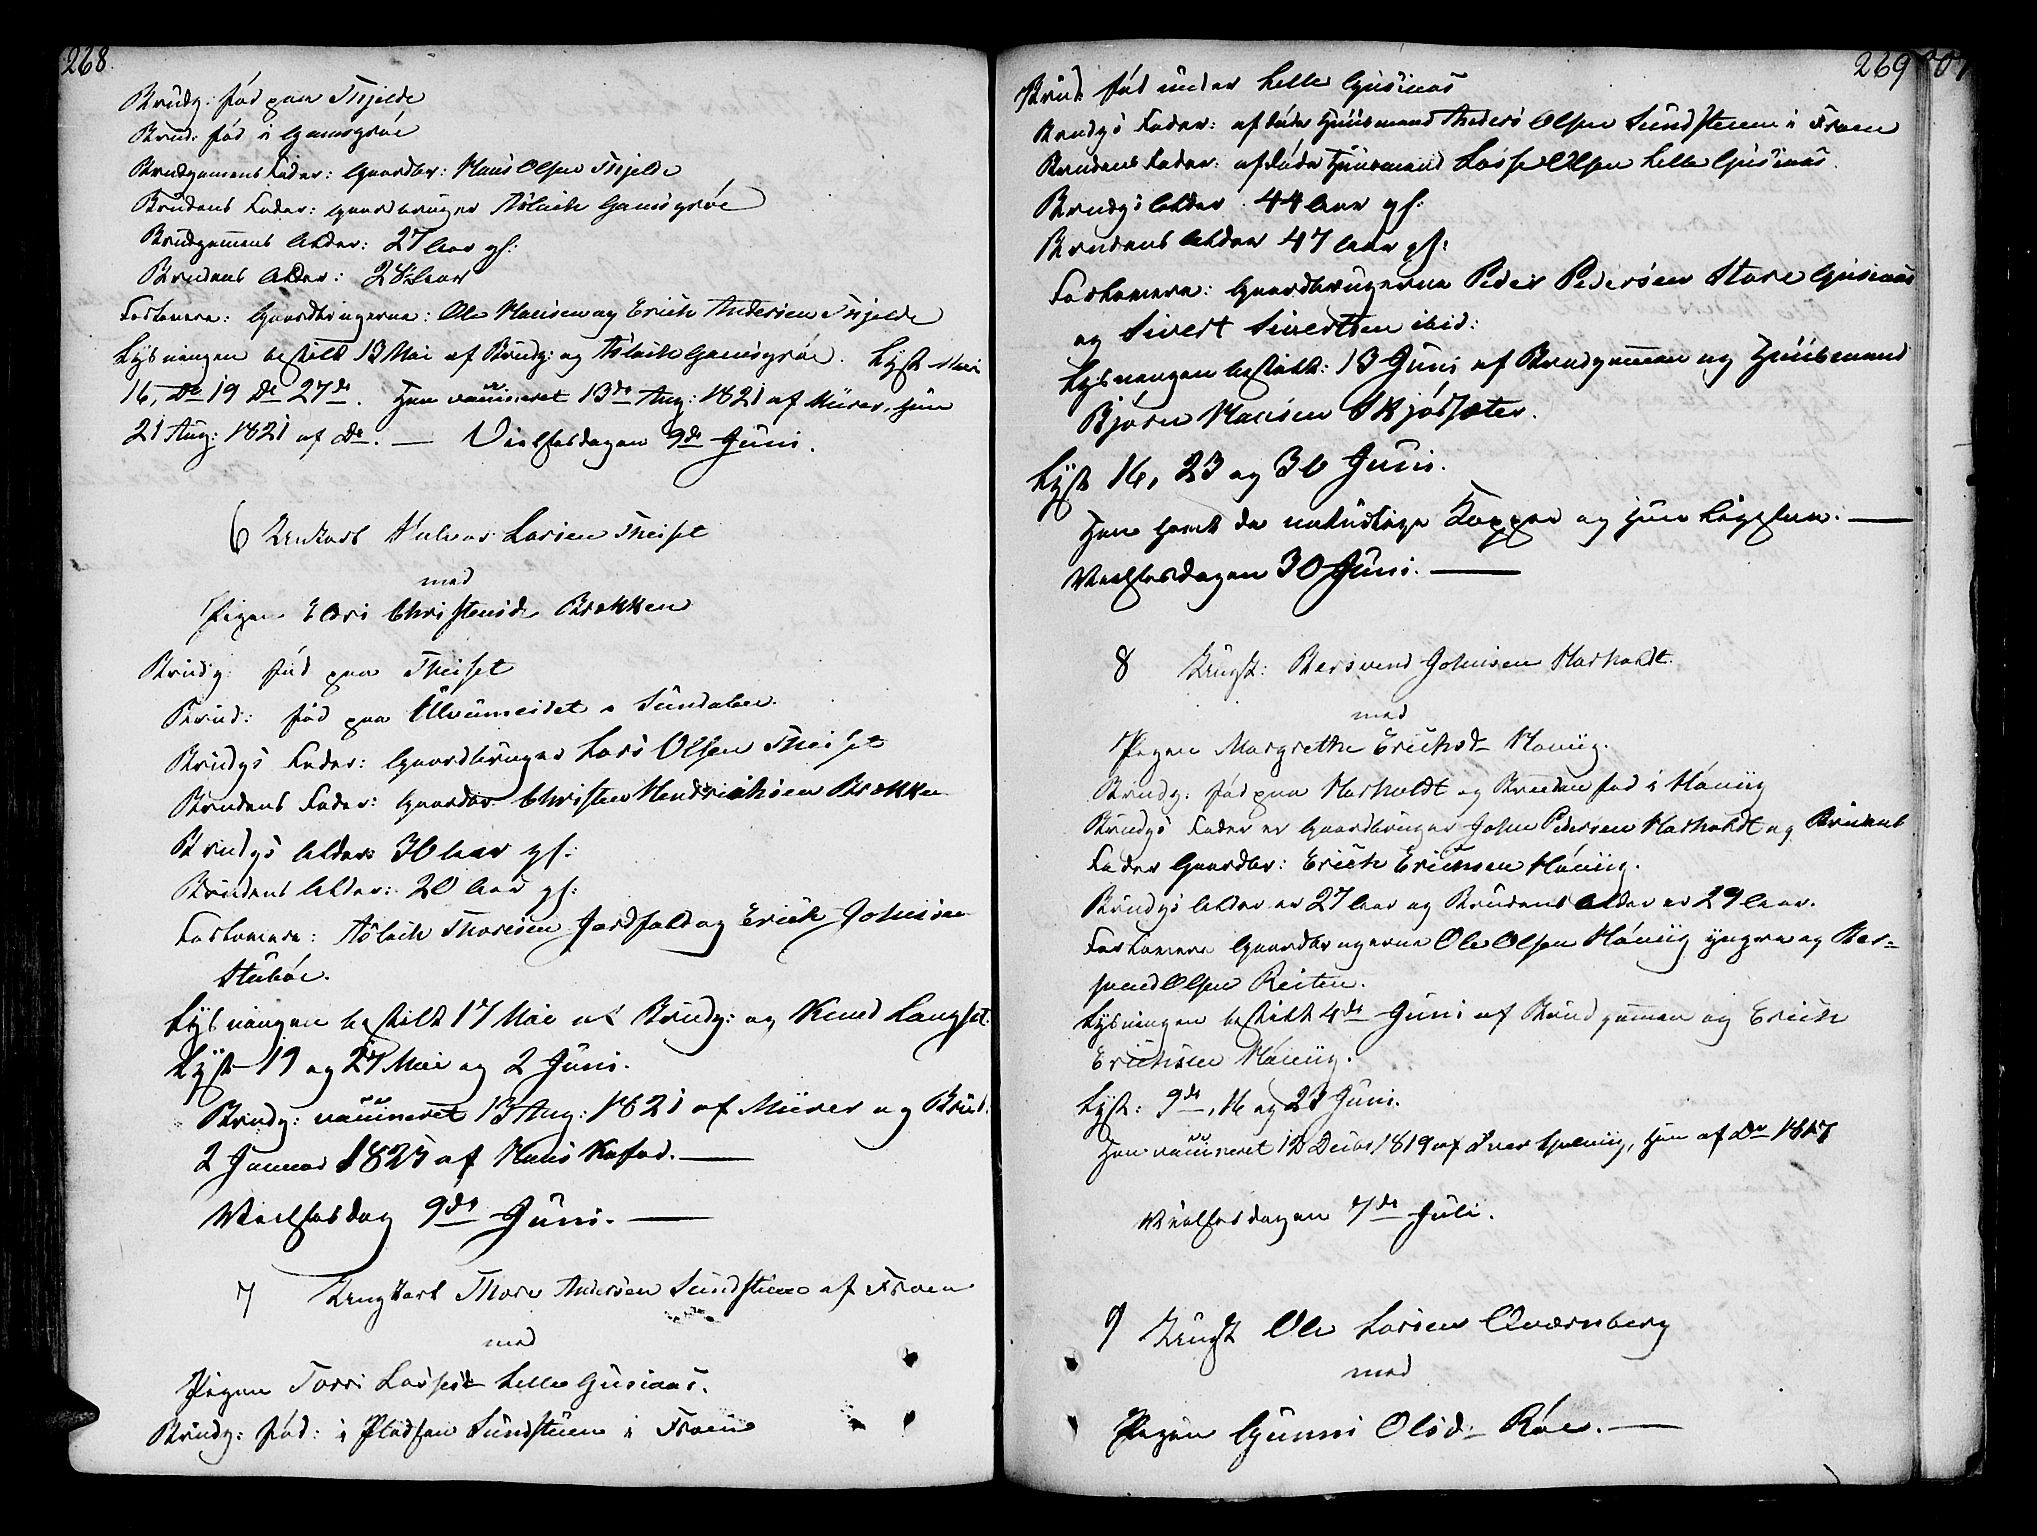 268
Brudg: fød paa Thjelde
Brud: fød i Gamsgrøe
Brudgamens Fader: Gaardbr: Hans Olsen Thjelde
Brudens Fader: Gaardbruger Aslach Gamsgrøe
Brudgamens Alder: 27 Aar gl:
Brudens Alder: 28 Aar
Forlovere: Gaardbrugerne: Ole Hansen og Erich Andersen Thjelde
Lysningen bestilt 13 Mai af Brudg: og Aslach Gamsgrøe. Lyst Mai
16, do 19 do 27de. Han vaccineret 13de Aug: 1821 af Mürer, hun
21 Aug: 1821 af do. — Vielsesdagen 9de Juni.
6 Unkarl Larsen Theiset
med
Pigen Eldri Christensd. Brækken
Brudg: fød paa Theiset
Brud: fød paa Ulvumeidet i Sundalen.
Brudgs Fader: Gaardbruger Lars Olsen Theiset
Brudens Fader: Gaardbr Christen Hendrichsen Brækken
Brudgs Alder 30 Aar gl:
Brudens Alder: 20 Aar gl:
Forlovere: Aslach Thoresen Jordfald og Erich Johnsen
Stubøe.
Lysningen bestilt 17 Mai af Brudg: og Knud Langset.
Lyst 19 og 27 Mai og 2 Juni.
Brudg: vaccineret 13 Aug: 1821 af Mürer og Brud.
2 Januar 1825 af Hans Kafod. —
Vielsesdag 9de Juni. —
7 Ungkarl Thore Andersen Sundstuen af Froen
med
Pigen Torri Lassesd. Lille Gusiaas.
Brudg: fød: i Pladsen Sundstuen i Froen
269
Brud: fød under Lille Gusiaas
Brudgs Fader: afdøde Huusmand Anders Olsen Sundstuen i Froen
Brudens Fader: afdøde Huusmand Lasse Olsen Lille Gusiaas.
Brudgs Alder 44 Aar gl:
Brudens Alder 47 Aar gl:
Forlovere: Gaardbrugerne Peder Pedersen Store Gusiaas
og Sivert Sivertsen ibid:
Lysningen bestilt: 13 Juni af Brudgamen og Huusmand
Bjørn Hansen Skjøssæter.
Lyst 16, 23 og 30 Juni.
Han havt de naturlige Kopper og hun ligesaa. —
Vielsesdagen 30 Juni. —
8 Ungk: Bersvend Johnsen Harholdt.
med
Pigen Margrethe Erichsd. Haniig.
Brudg: fød paa Harholdt og Bruden fød i Hániig
Brudgs Fader er Gaardbruger John Pedersen Harholdt og Brudens
Fader Gaardbr: Erich Erichsen Hániig.
Brudgs Alder er 27 Aar og Brudens Alder er 29 Aar.
Forlovere Gaardbrugerne Ole Olsen Hániig yngre og Ber-
svend Olsen Reiten.
Lysningen bestilt 4de Juni af Brudgamen og Erich
Erichsen Hániig.
Lyst: 9de, 16 og 23 Juni.
Han vaccineret 12 Decbr 1819 af Iver, hun af do 1817
Vielsesdagen 7de Juli.
9 Ungk Ole Larsen Qværnberg
med
Pigen Gunni Olsd. Røe. —